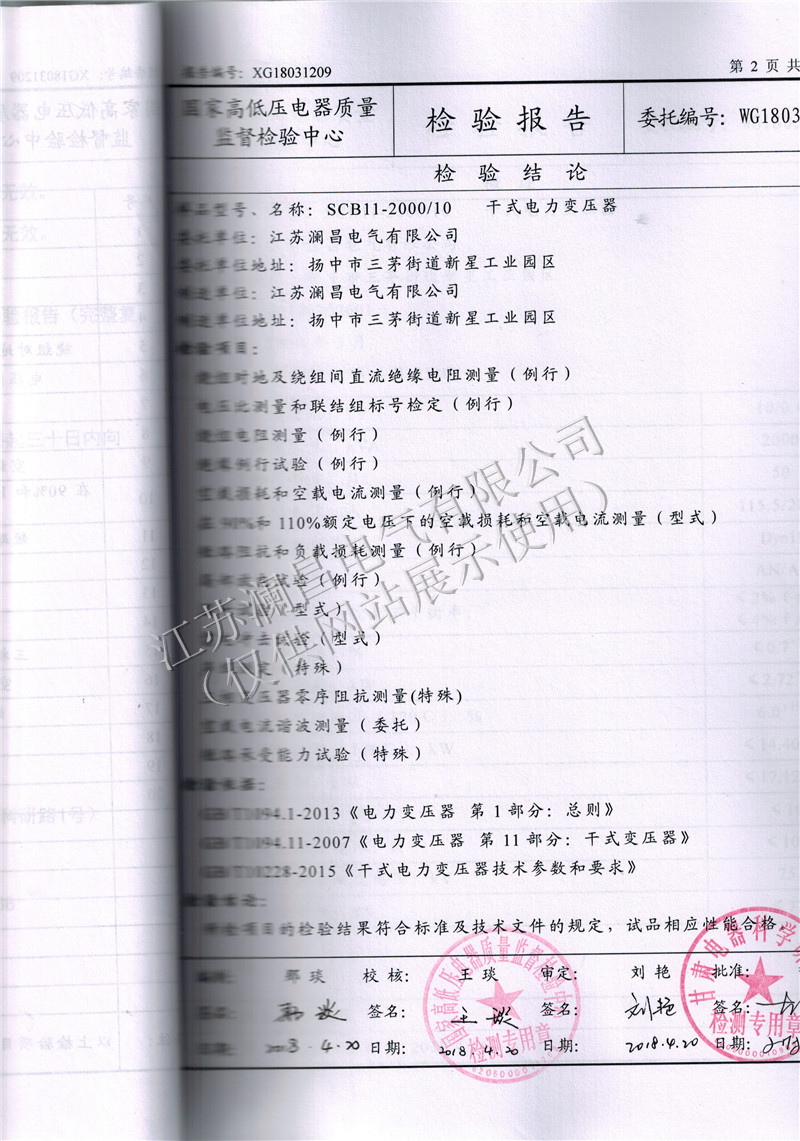 报告编号：XG18031209
第 2 页 共
国家高低压电器质量
监督检验中心
检 验 报 告
委托编号：WG1803
检 验 结 论
样品型号、名称：SCB11-2000/10 干式电力变压器
委托单位：江苏澜昌电气有限公司
委托单位地址：扬中市三茅街道新星工业园区
制造单位：江苏澜昌电气有限公司
制造单位地址：扬中市三茅街道新星工业园区
检验项目：
绕组对地及绕组间直流绝缘电阻测量（例行）
电压比测量和联结组标号检定（例行）
绕组电阻测量（例行）
绝缘例行试验（例行）
空载损耗和空载电流测量（例行）
在 90%和 110%额定电压下的空载损耗和空载电流测量（型式）
短路阻抗和负载损耗测量（例行）
局部放电试验（例行）
试验（型式）
试验（型式）
（特殊）
变压器零序阻抗测量(特殊)
空载电流谐波测量（委托）
短路承受能力试验（特殊）
检验依据：
GB/T1094.1-2013《电力变压器 第 1 部分：总则》
GB/T1094.11-2007《电力变压器 第 11 部分：干式变压器》
GB/T10228-2015《干式电力变压器技术参数和要求》
检验结论：
所检项目的检验结果符合标准及技术文件的规定，试品相应性能合格。
编制： 郡琰 校 核： 王 琰 审定： 刘 艳 批准：
签名： 签名： 王琰 签名： 刘艳 签名：
日期： 2018.4.20 日期： 2018.4.20 日期： 2018.4.20 日期：
江苏澜昌电气有限公司
（仅供网站展示使用）
国家高低压电器质量监督检验中心
检测专用章
甘肃电器科学
检测专用章